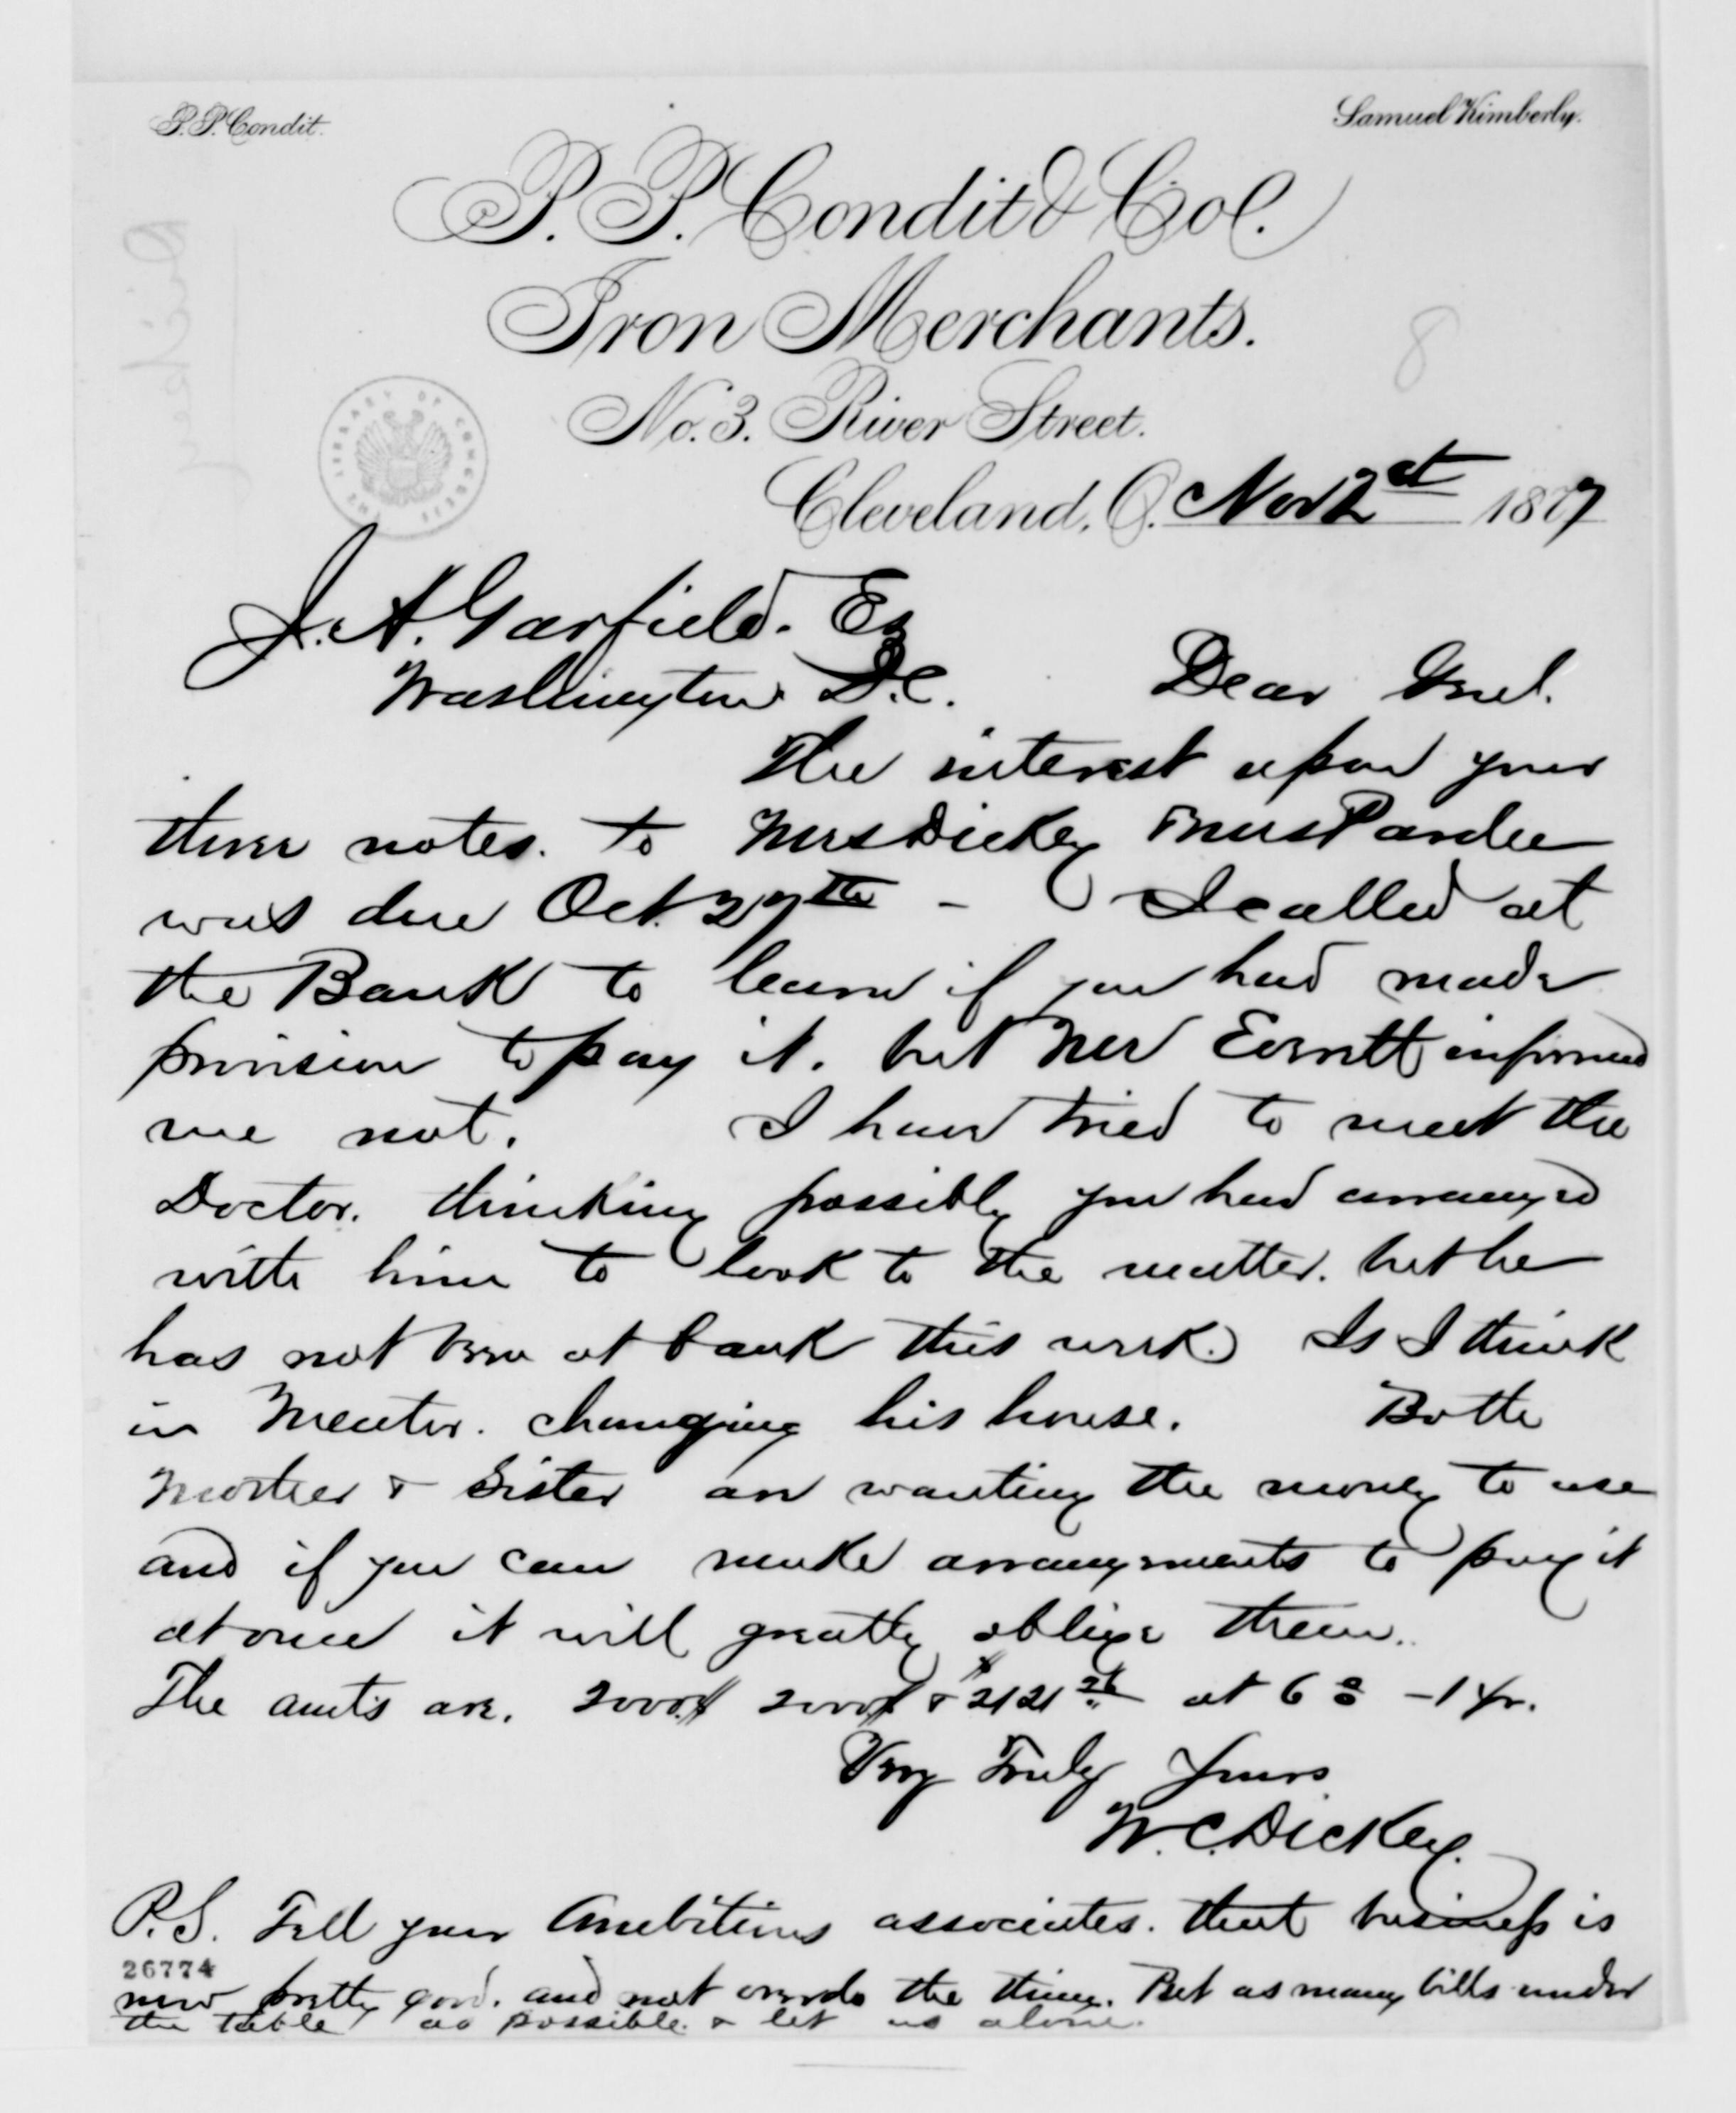 P. P. Condit.
Samuel Kimberly.
P. P. Condit & Co.
Iron Merchants.
No. 3. River Street.
THE LIBRARY OF CONGRESS
8
Cleveland, O. Nov 2 1877
J. A. Garfield. Esq
Washington D.C. Dear Genl.
The interest upon your
three notes. to Mrs Dickey & Mrs Pardee
was due Oct. 27th – I called at
the Bank to learn if you had made
provision to pay it. but Mr Everett informed
me not. I have tried to meet the
Doctor. thinking possibly you had arranged
with him to look to the matter. but he
has not been at bank this week. Is I think
in Mentor. changing his house. Both
Mother & Sister are wanting the money to use
and if you can make arrangements to pay it
at once it will greatly oblige them.
The amts are. 2000$ 2000$ & $2121 at 6 % – 1 yr.
Very Truly Yours
W. C. Dickey.
P.S. Tell your Ambitious associates. that business is
26774
now pretty good. and not overdo the thing. Put as many bills under
the table as possible & let us alone.